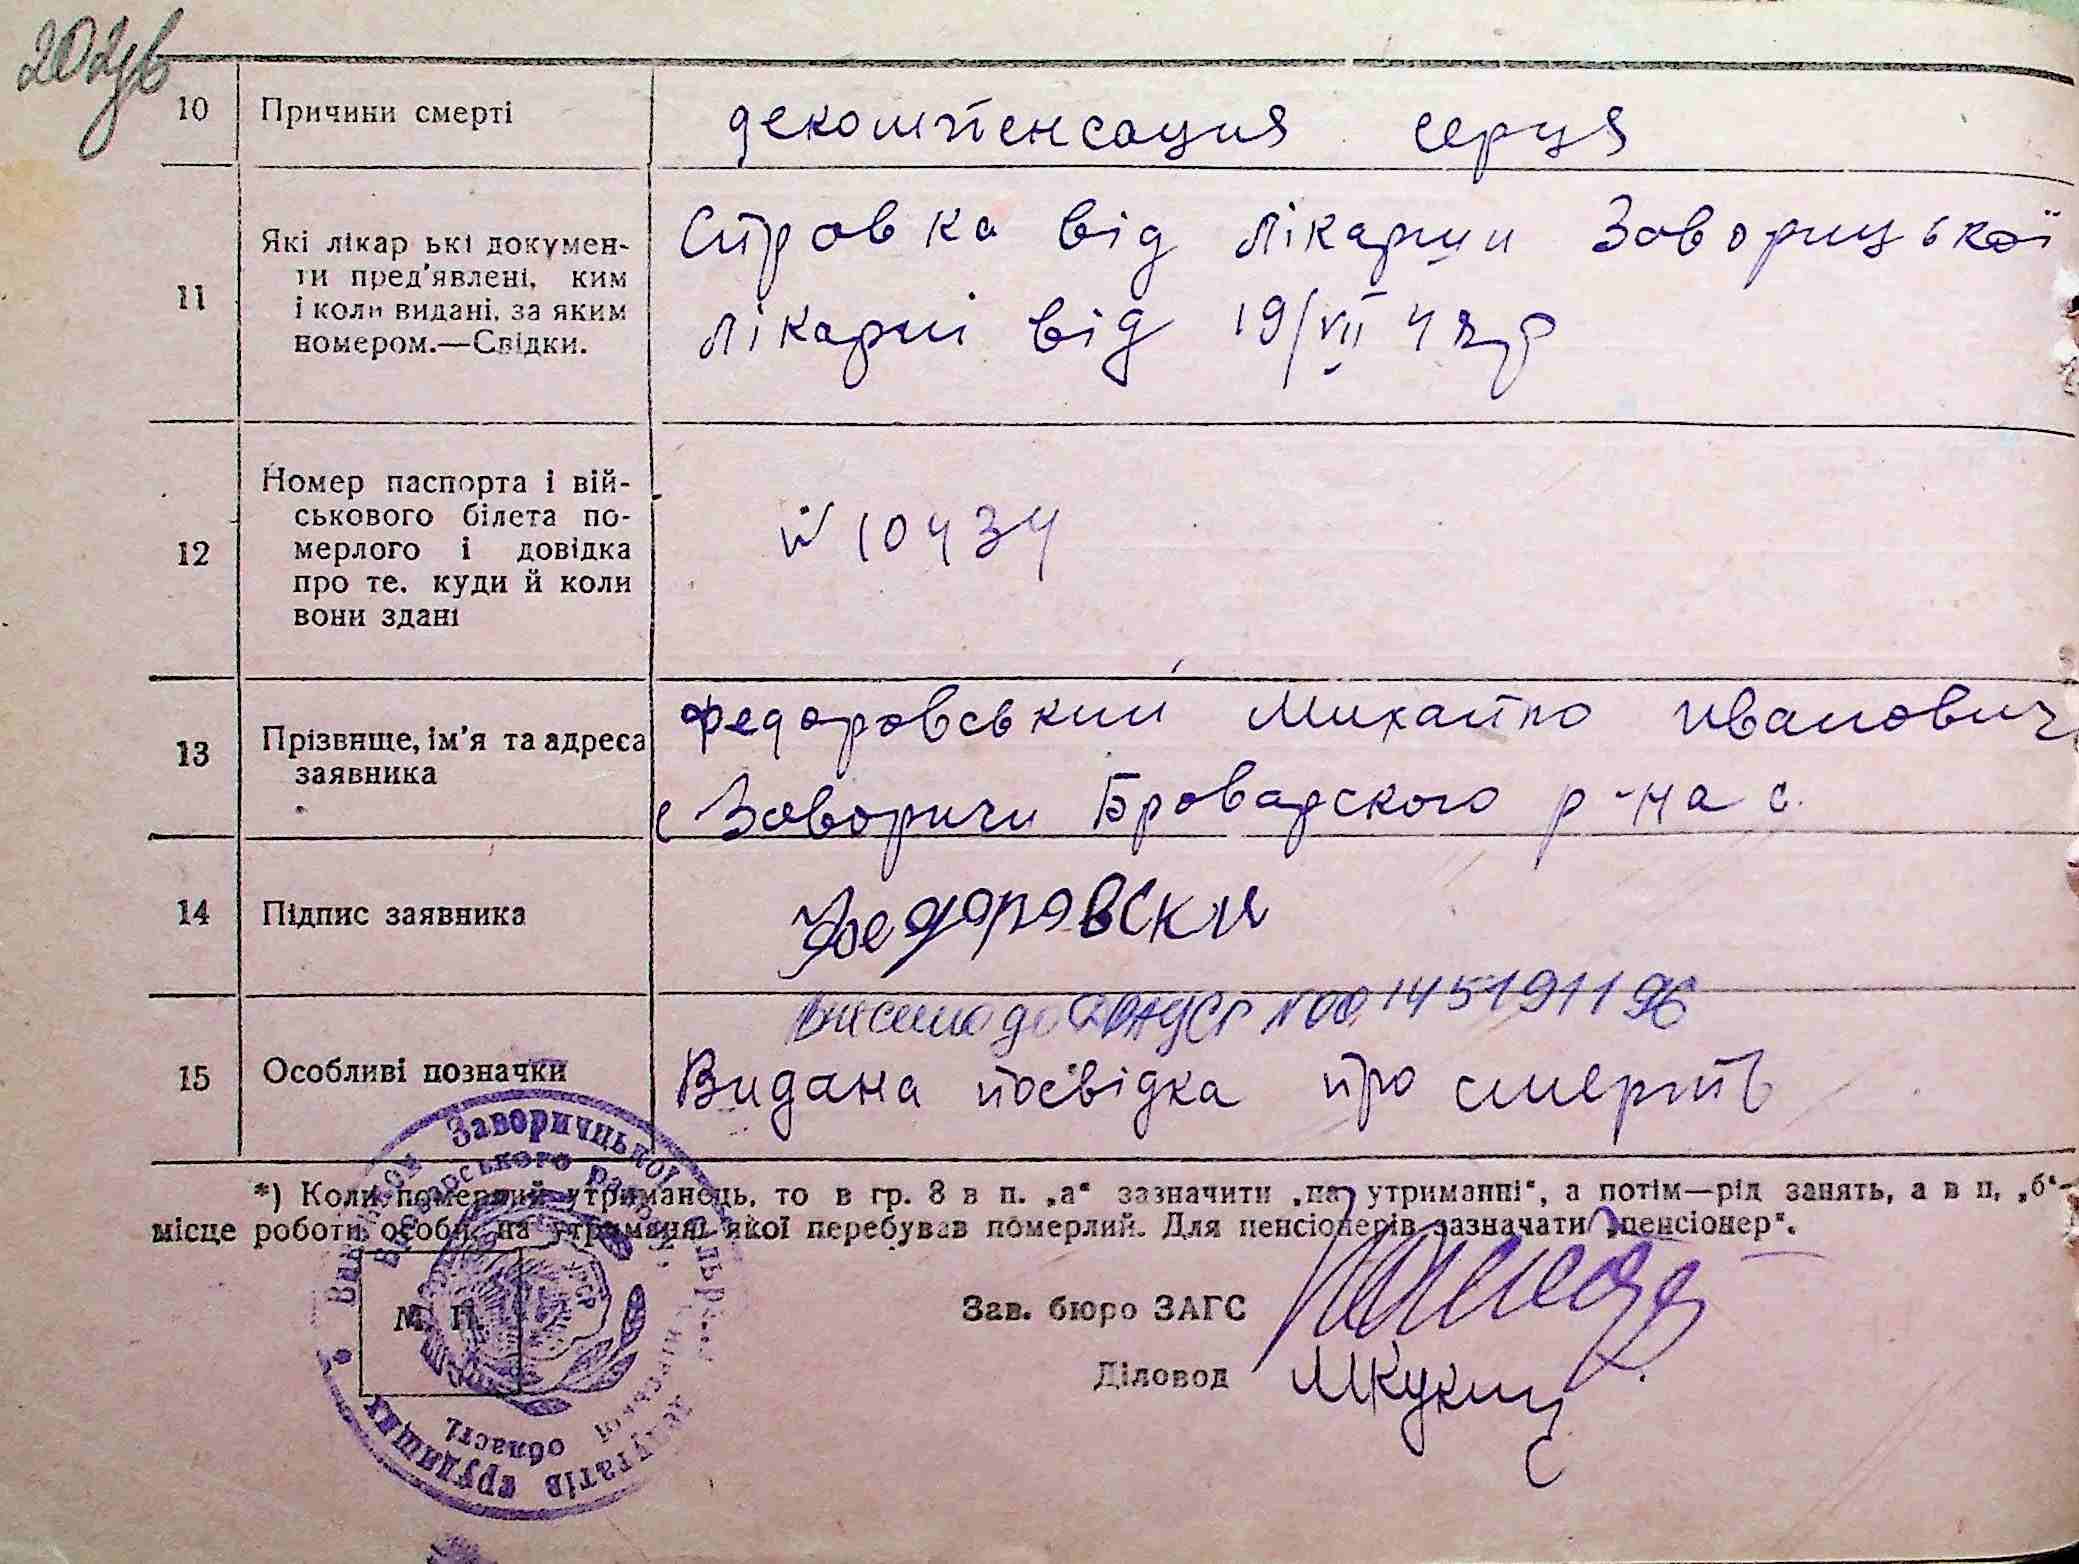 202зв
10 Причини смерті декомпенсация серця
11 Які лікар ькі докумен-
ти пред'явлені, ким
і коли видані, за яким
номером.—Свідки.
Справка від лікарни Заворицької
лікарні від 19/VII 47р
12 Номер паспорта і вій-
ськового білета по-
мерлого і довідка
про те, куди й коли
вони здані
№ 10434
13 Прізвище, ім'я та адреса
заявника
Федоровський Михайло Иванович
с Заворичи Броварского р-на с.
14 Підпис заявника Федоровски
внесено до ДРАЦСГ №00145191196
15 Особливі позначки Видана посвідка про смерть
*) Коли померлий утриманець, то в гр. 8 в п. „а“ зазначити „на утриманні“, а потім—рід занять, а в п. „б“—
місце роботи особи, на утриманні якої перебував померлий. Для пенсіонерів зазначати „пенсіонер“.
М. П.
Зав. бюро ЗАГС
Діловод
Виконком Заворичцької сільради депутатів трудящих
Броварського району, Київської області
УРСР